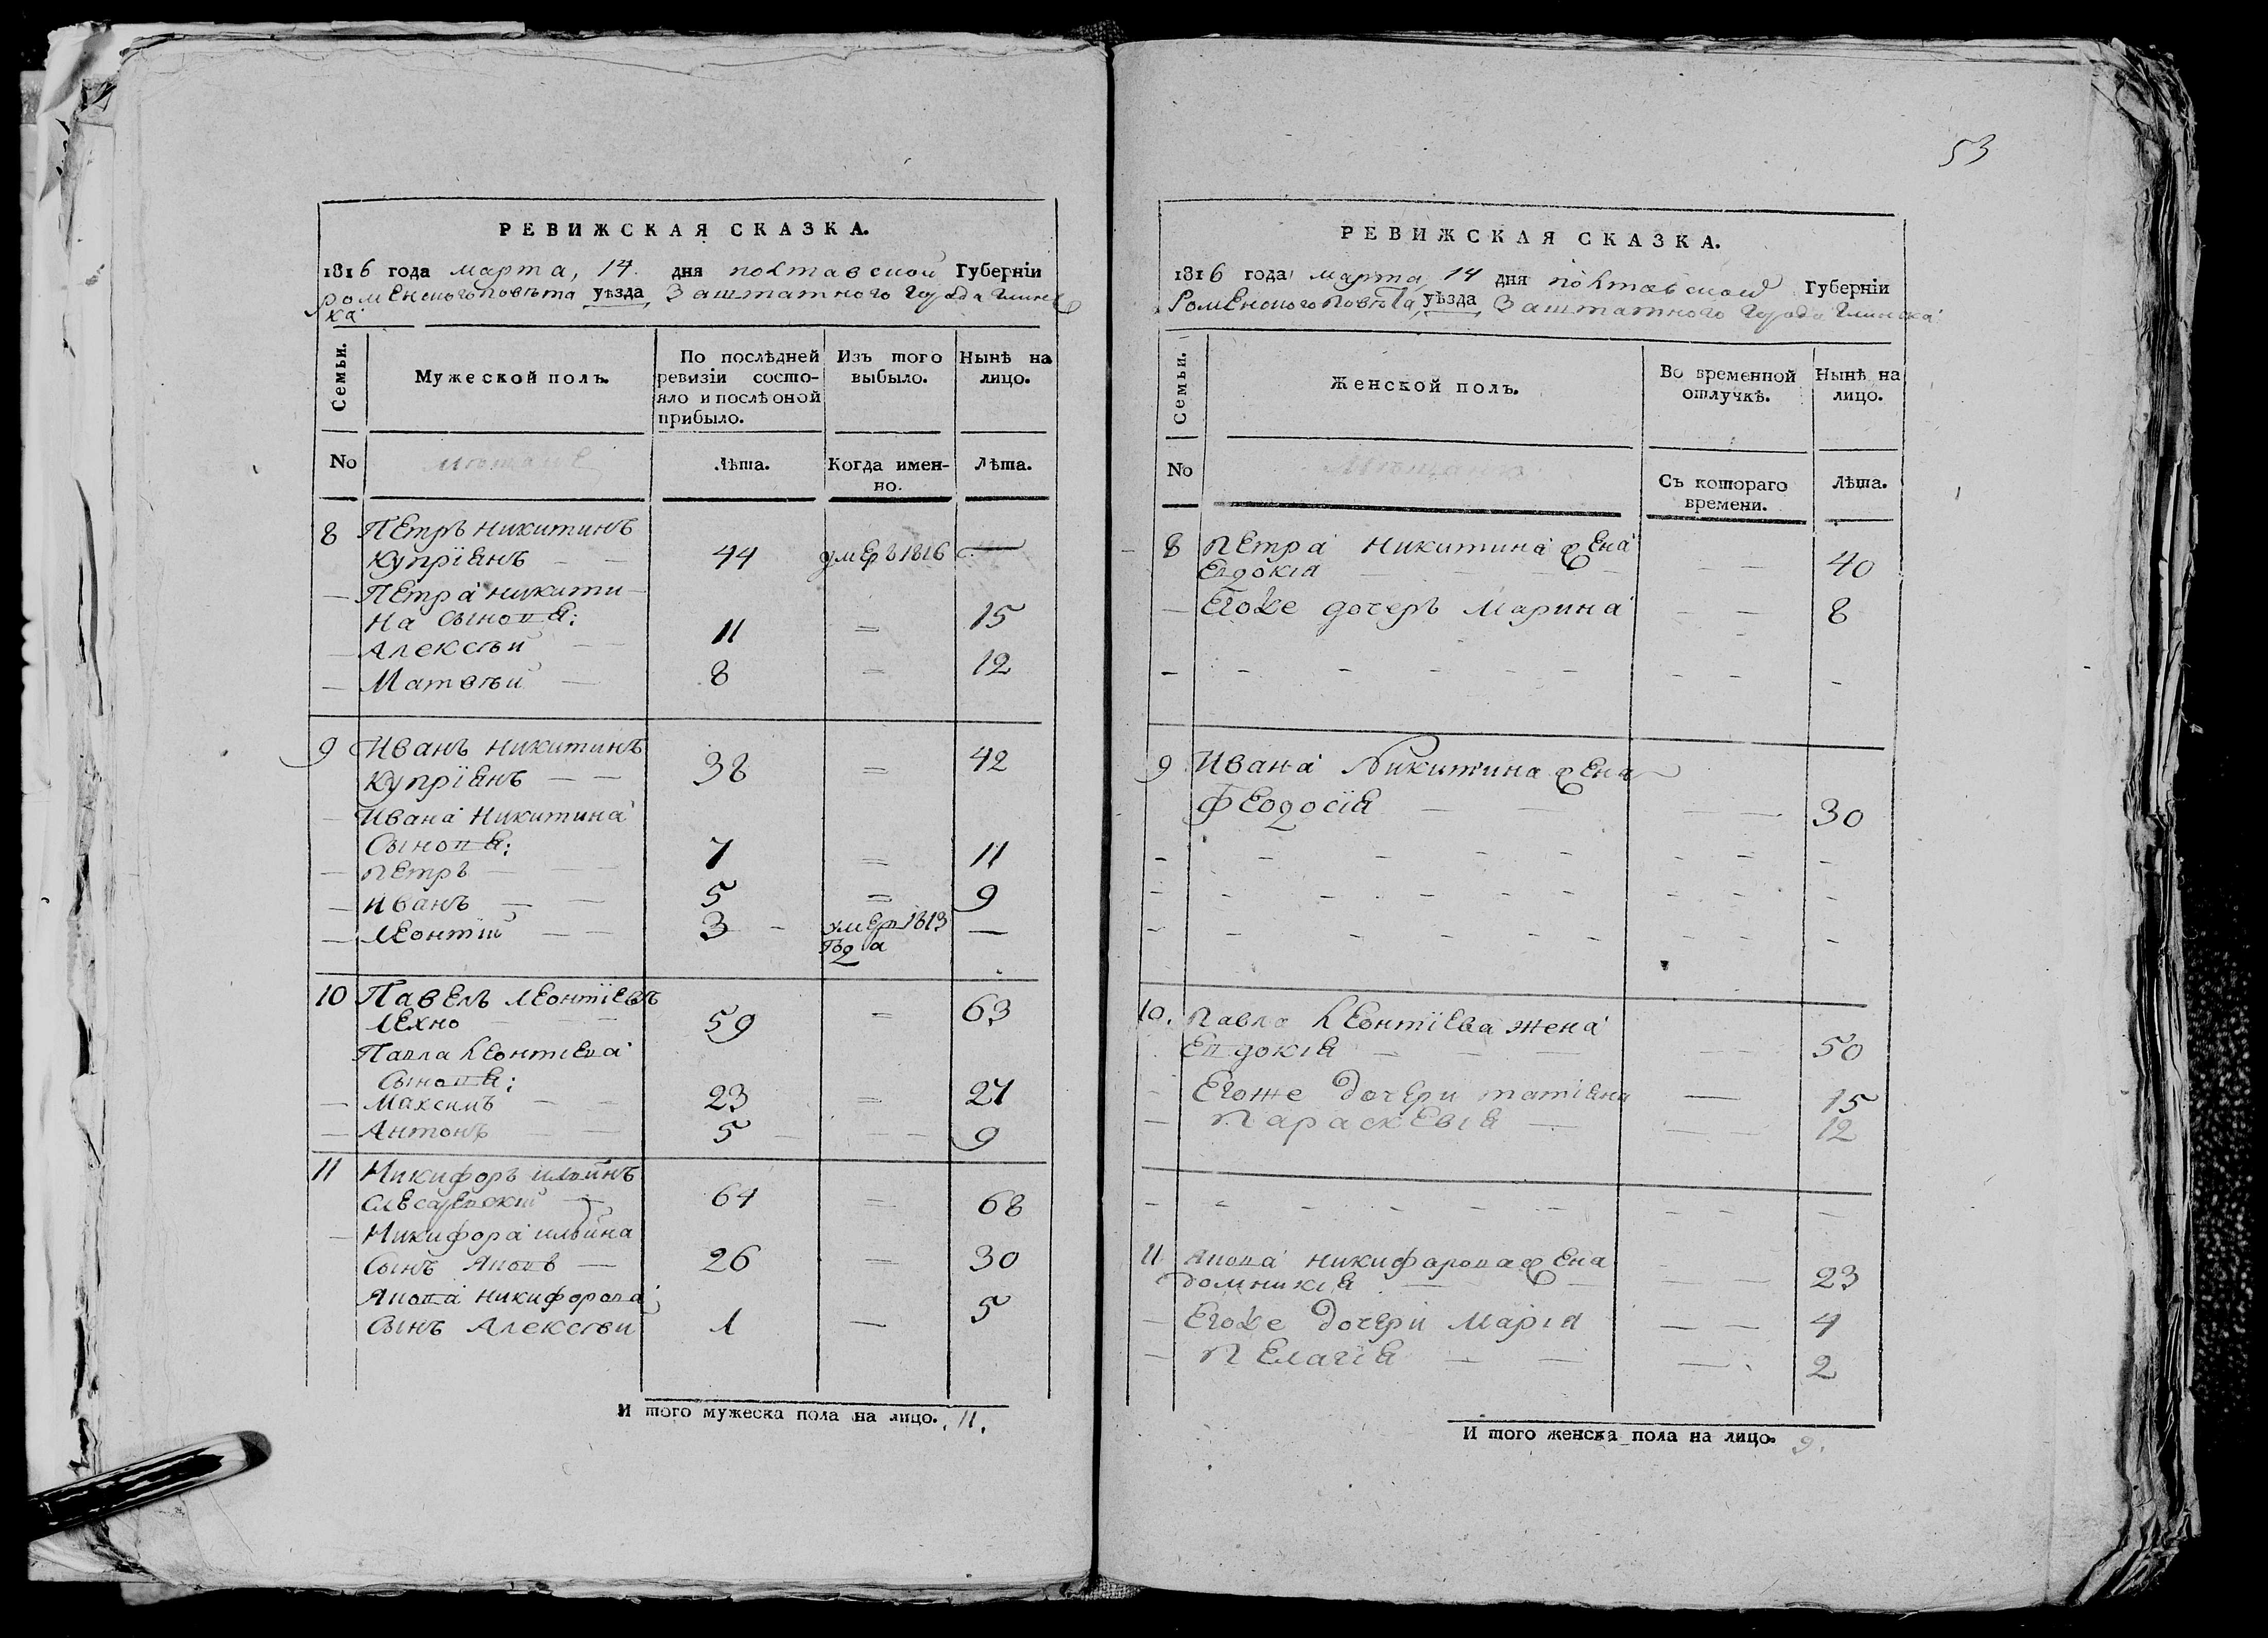 53
РЕВИЖСКАЯ СКАЗКА.
1816 года марта, 14. дня полтавской Губерніи
роменского повѣта уѣзда, Заштатного города Глинс
ка
Семьи.
Мужеской полъ.
По послѣдней ревизіи состо-
яло и послѣ оной
прибыло.
Изъ того
выбыло.
Нынѣ на
лицо.
No
мѣщане
Лѣта.
Когда имен-
но.
Лѣта.
8 Петръ никитинъ
купріянъ — — 44 умеръ 1816 —
— Петра никити-
на сыновя:
— Алексѣй — — 11 = 15
— Матвѣй — 8 = 12
9 Иванъ никитинъ
купріянъ — — 38 = 42
— Ивана Никитина
Сыновя:
— петръ — — 7 = 11
— иванъ — — 5 = 9
— леонтій — — 3 - умеръ 1813 —
года
10 Павелъ леонтіевъ
лехно — — 59 = 63
Павла леонтіева
Сыновя:
— Максимъ — — 23 = 27
— Антонъ — — 5 — — — 9
11 Никифоръ ильинъ
слесаревскій — 64 = 68
— Никифора ильина
Сынъ Яковъ — 26 = 30
Якова никифорова
Сынъ Алексѣй 1 — 5
И того мужеска пола на лицо. 11.
РЕВИЖСКАЯ СКАЗКА.
1816 года марта, 14 дня полтавской Губерніи
Роменского повѣта, уѣзда, Заштатного города Глинска
Семьи.
Женской полъ.
Во временной
отлучкѣ.
Нынѣ на
лицо.
No
Мѣщанки
Съ котораго
времени.
Лѣта.
8 петра никитина жена
Евдокія — — — 40
— Егоже дочеръ марина — — 8
9 Ивана Никитина жена
Феодосія — — — — 30
10. павла леонтіева жена
Евдокія — — — — 50
- Егоже дочери татіяна — 15
— параскевія — — 12
11 Якова никифарова жена
домникія — — — — 23
— Егоже дочери марія — — 4
— пелагія — — — 2
И того женска пола на лицо. 9.